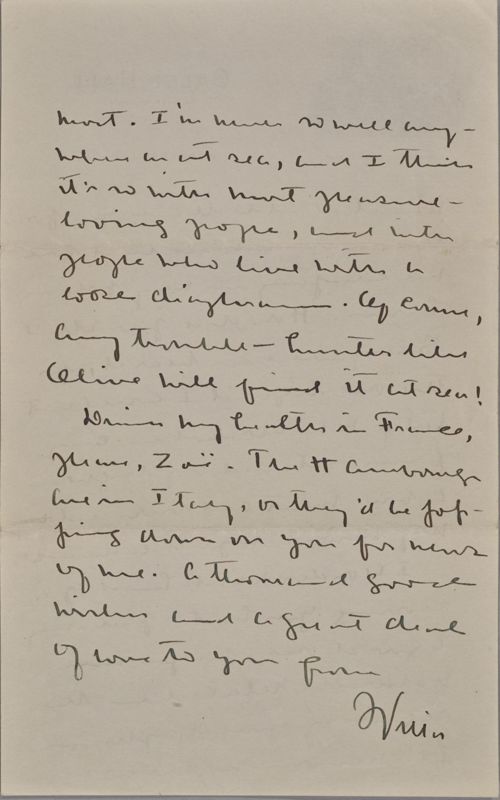 most. I'm never so well any-
where as at sea, and I think
it's so with most pleasure-
loving people, and with
people who live with a
loose diaphragm. Of course,
any trouble-hunter like
Olive will find it at sea!
Drink my health in France,
please, Zoë. The Hambourgs
are in Italy, or they'd be pop-
ping down on you for news
of me. A thousand good
wishes and a great deal
of love to you from